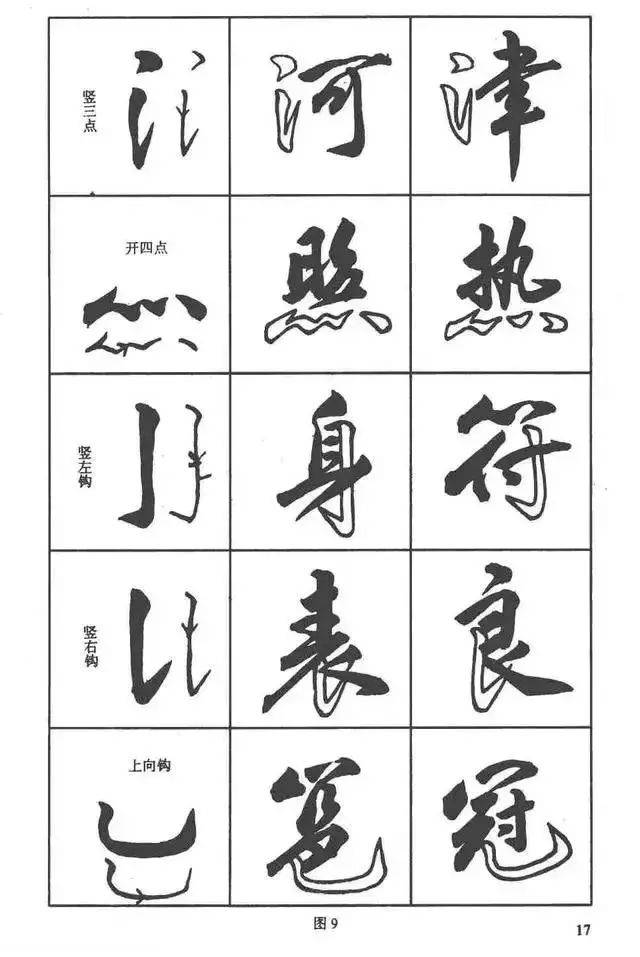 竖三点
河
津
开四点
照
热
竖左钩
身
符
竖右钩
表
良
上向钩
冠
图9
17